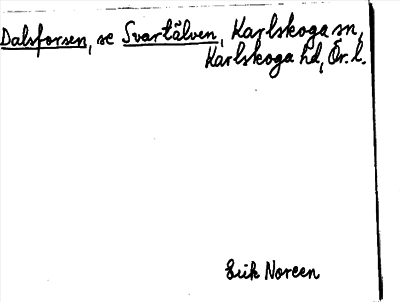 Dalsforsen, se Svartälven, Karlskoga sn,
Karlskoga hd, Ör. l.
Erik Noreen